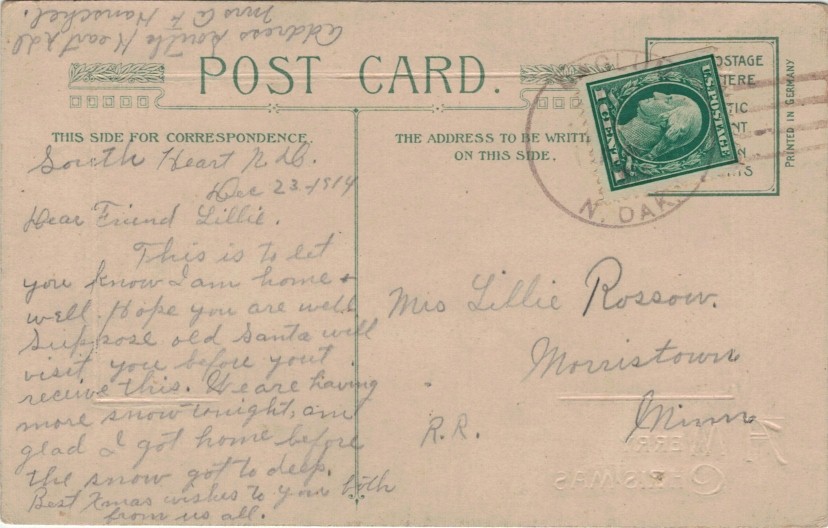 address South Heart N.D.
Mrs A F Hanschel.
POST CARD.
THIS SIDE FOR CORRESPONDENCE.
South Heart N. D.
Dec 23-1914
Dear Friend Lillie.
This is to let
you know I am home &
well. Hope you are well.
Suppose old Santa will
visit you before yout
receive this. We are having
more snow tonight, am
glad I got home before
the snow got to deep.
Best Xmas wishes to you both
from us all.
THE ADDRESS TO BE WRITT
ON THIS SIDE.
N. DAK.
U.S. POSTAGE
1 CENT 1
OSTAGE
ERE
TIC
NT
N
TS
PRINTED IN GERMANY
Mrs Lillie Rossow.
Morristown
Minn
R.R.
A MERRY
CHRISTMAS